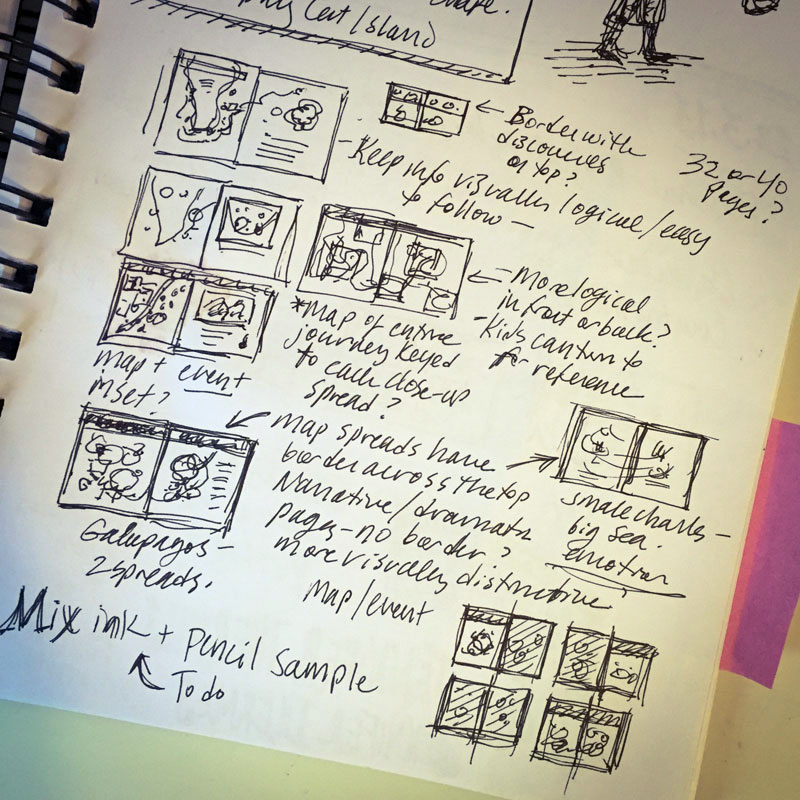 Cat Island
← Border with
discoveries
on top?
32 or 40
Pages?
- Keep info visually logical/easy
to follow -
← - More logical
in front or back?
- Kids can turn to
for reference
*Map of entire
journey keyed
to each close-up
spread?
Map + event
inset?
Map spreads have
border across the top
Narrative/dramatic
pages - no border?
more visually distinctive.
small charles -
big sea.
emotion
Galapagos -
2 spreads.
Map/event
Mix ink + pencil sample
To do